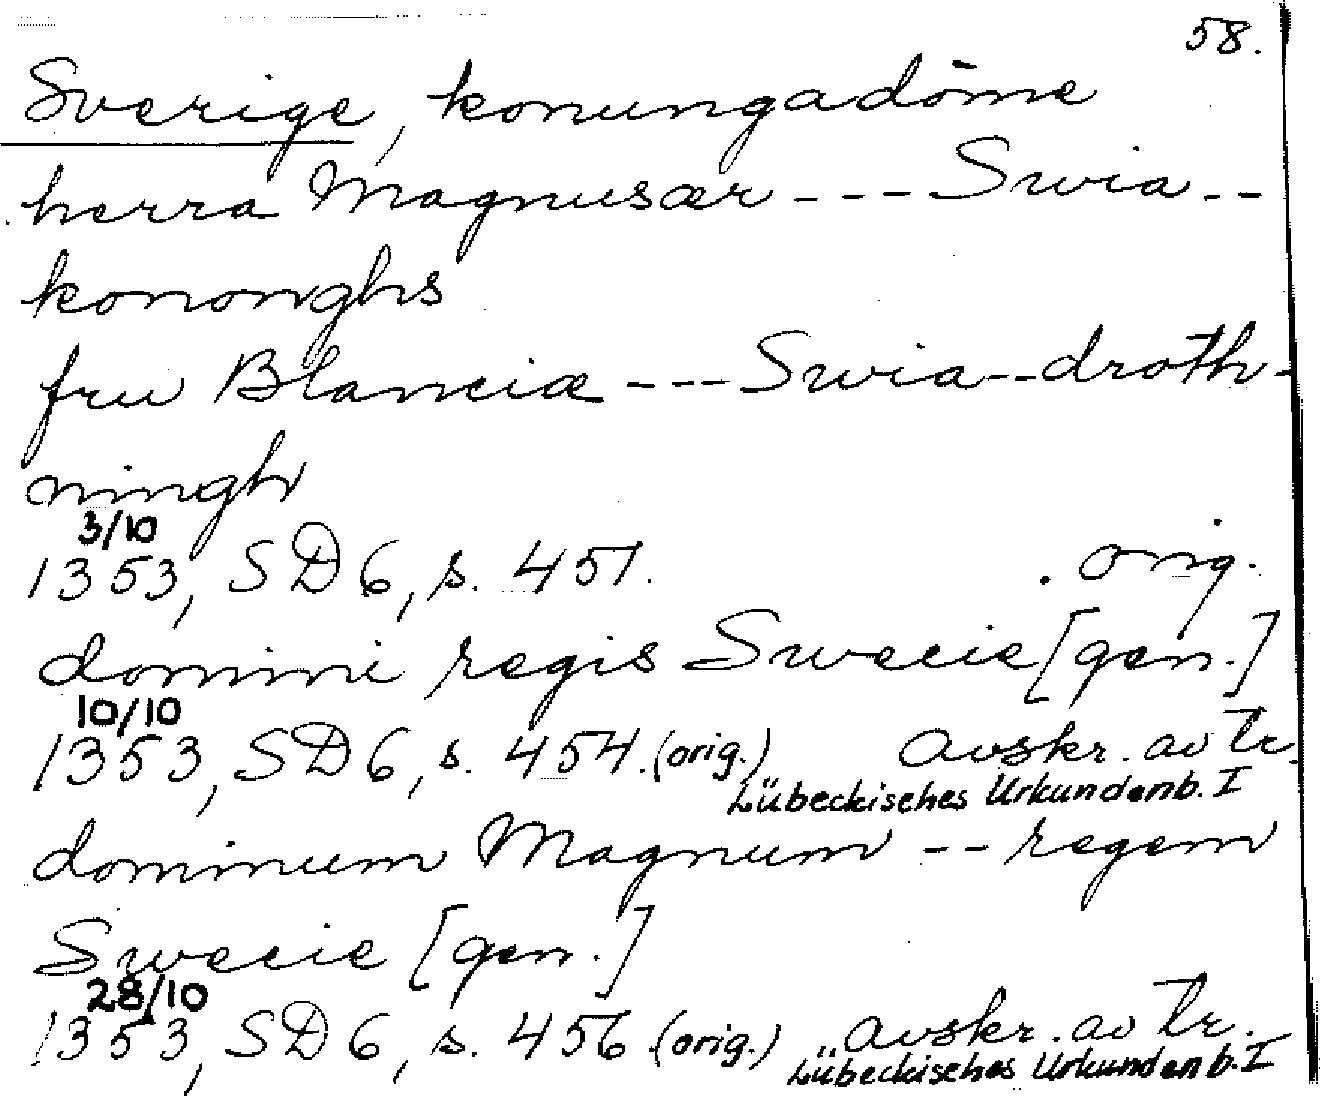 58.
Sverige, konungadöme
herra Magnusær --- Swia --
kononghs
fru Blanciæ --- Swia -- droth-
ningh
3/10
1353, SD 6, s. 451. orig.
domini regis Swecie [gen.]
10/10
1353, SD 6, s. 454. (orig.) avskr. av tr.
Lübeckisches Urkundenb. I
dominum Magnum -- regem
Swecie [gen.]
28/10
1353, SD 6, s. 456 (orig.) avskr. av tr.
Lübeckisches Urkundenb. I